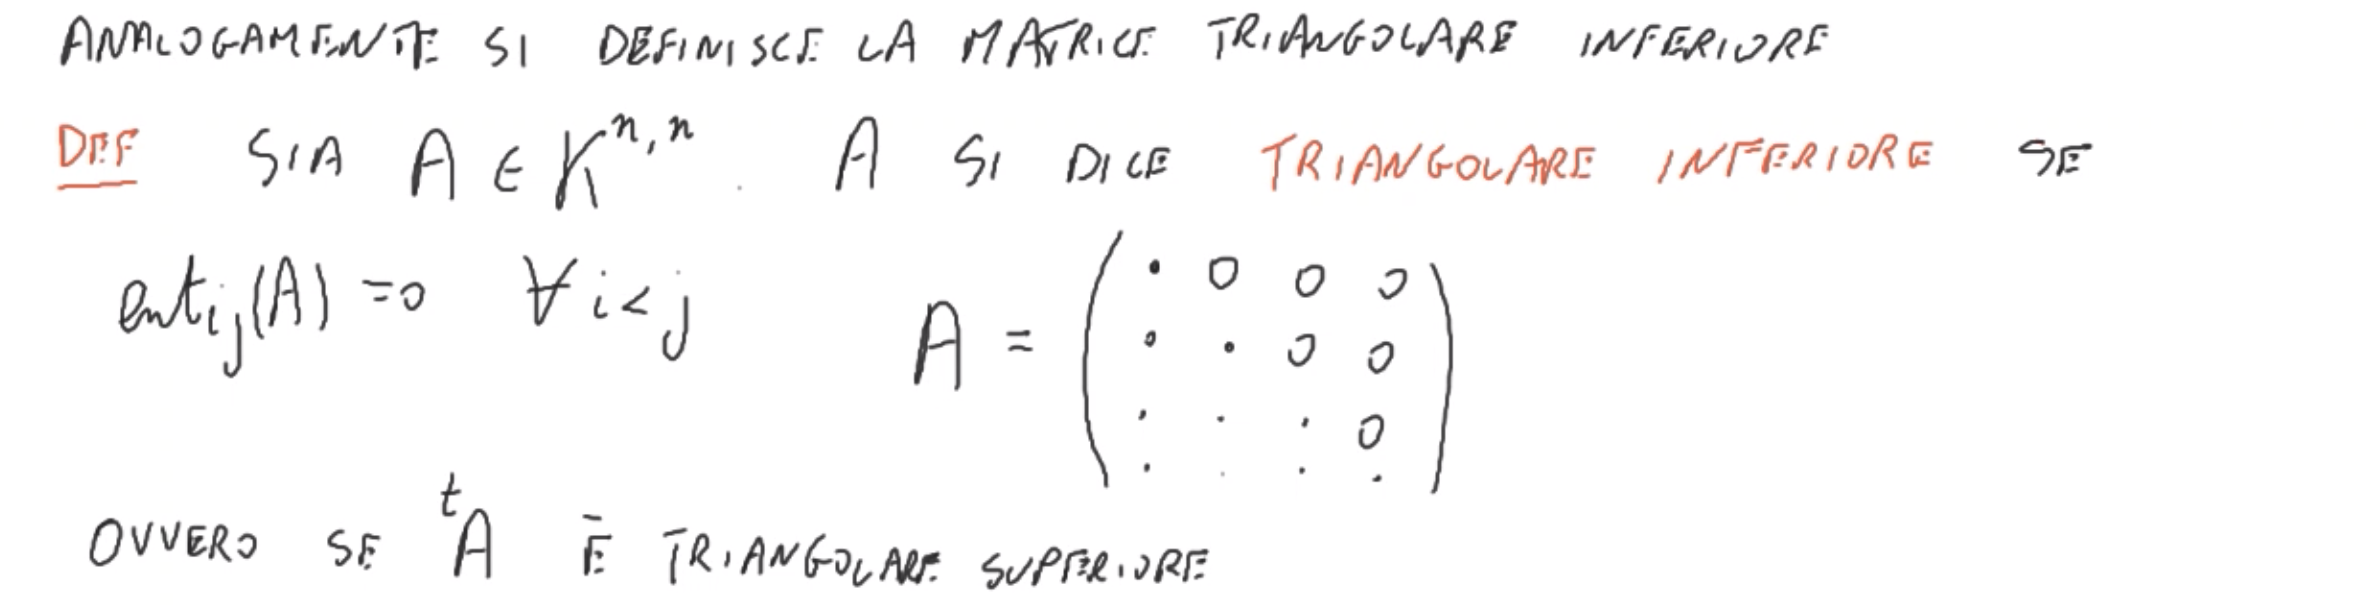 ANALOGAMENTE SI DEFINISCE LA MATRICE TRIANGOLARE INFERIORE
DEF SIA A ∈ K^{n,n}. A SI DICE TRIANGOLARE INFERIORE SE
ent_{ij}(A) = 0 ∀ i < j
A = ( · 0 0 0
· · 0 0
· · · 0
· · · · )
OVVERO SE ^tA È TRIANGOLARE SUPERIORE